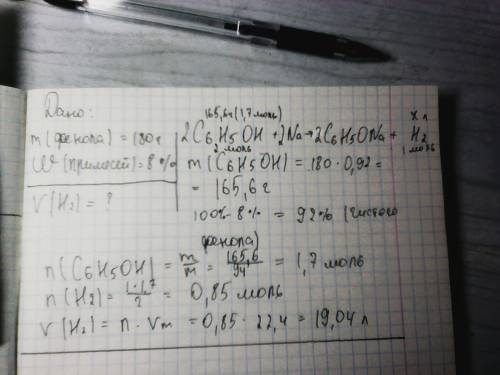 Дано:
m (фенола) = 180 г
W (примесей) = 8 %
V (H₂) = ?
165,6 г (1,7 моль) x л
2C₆H₅OH + 2Na → 2C₆H₅ONa + H₂
2 моль 1 моль
m (C₆H₅OH) = 180 · 0,92 =
= 165,6 г
100% - 8 % = 92% (чистого
фенола)
n (C₆H₅OH) = m/m = 165,6/94 = 1,7 моль
n (H₂) = 1·1,7/2 = 0,85 моль
V (H₂) = n · Vm = 0,85 · 22,4 = 19,04 л